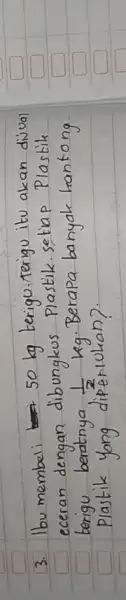 3. Ibu membeli 50 kg terigu. Terigu itu akan dijual
eceran dengan dibungkus Plastik. setiap Plastik
terigu beratnya 1/2 kg. Berapa banyak kantong
Plastik yang diperlukan?.